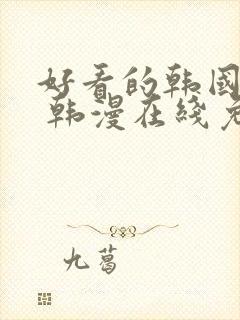 好看的韩国
韩漫在线
九葛